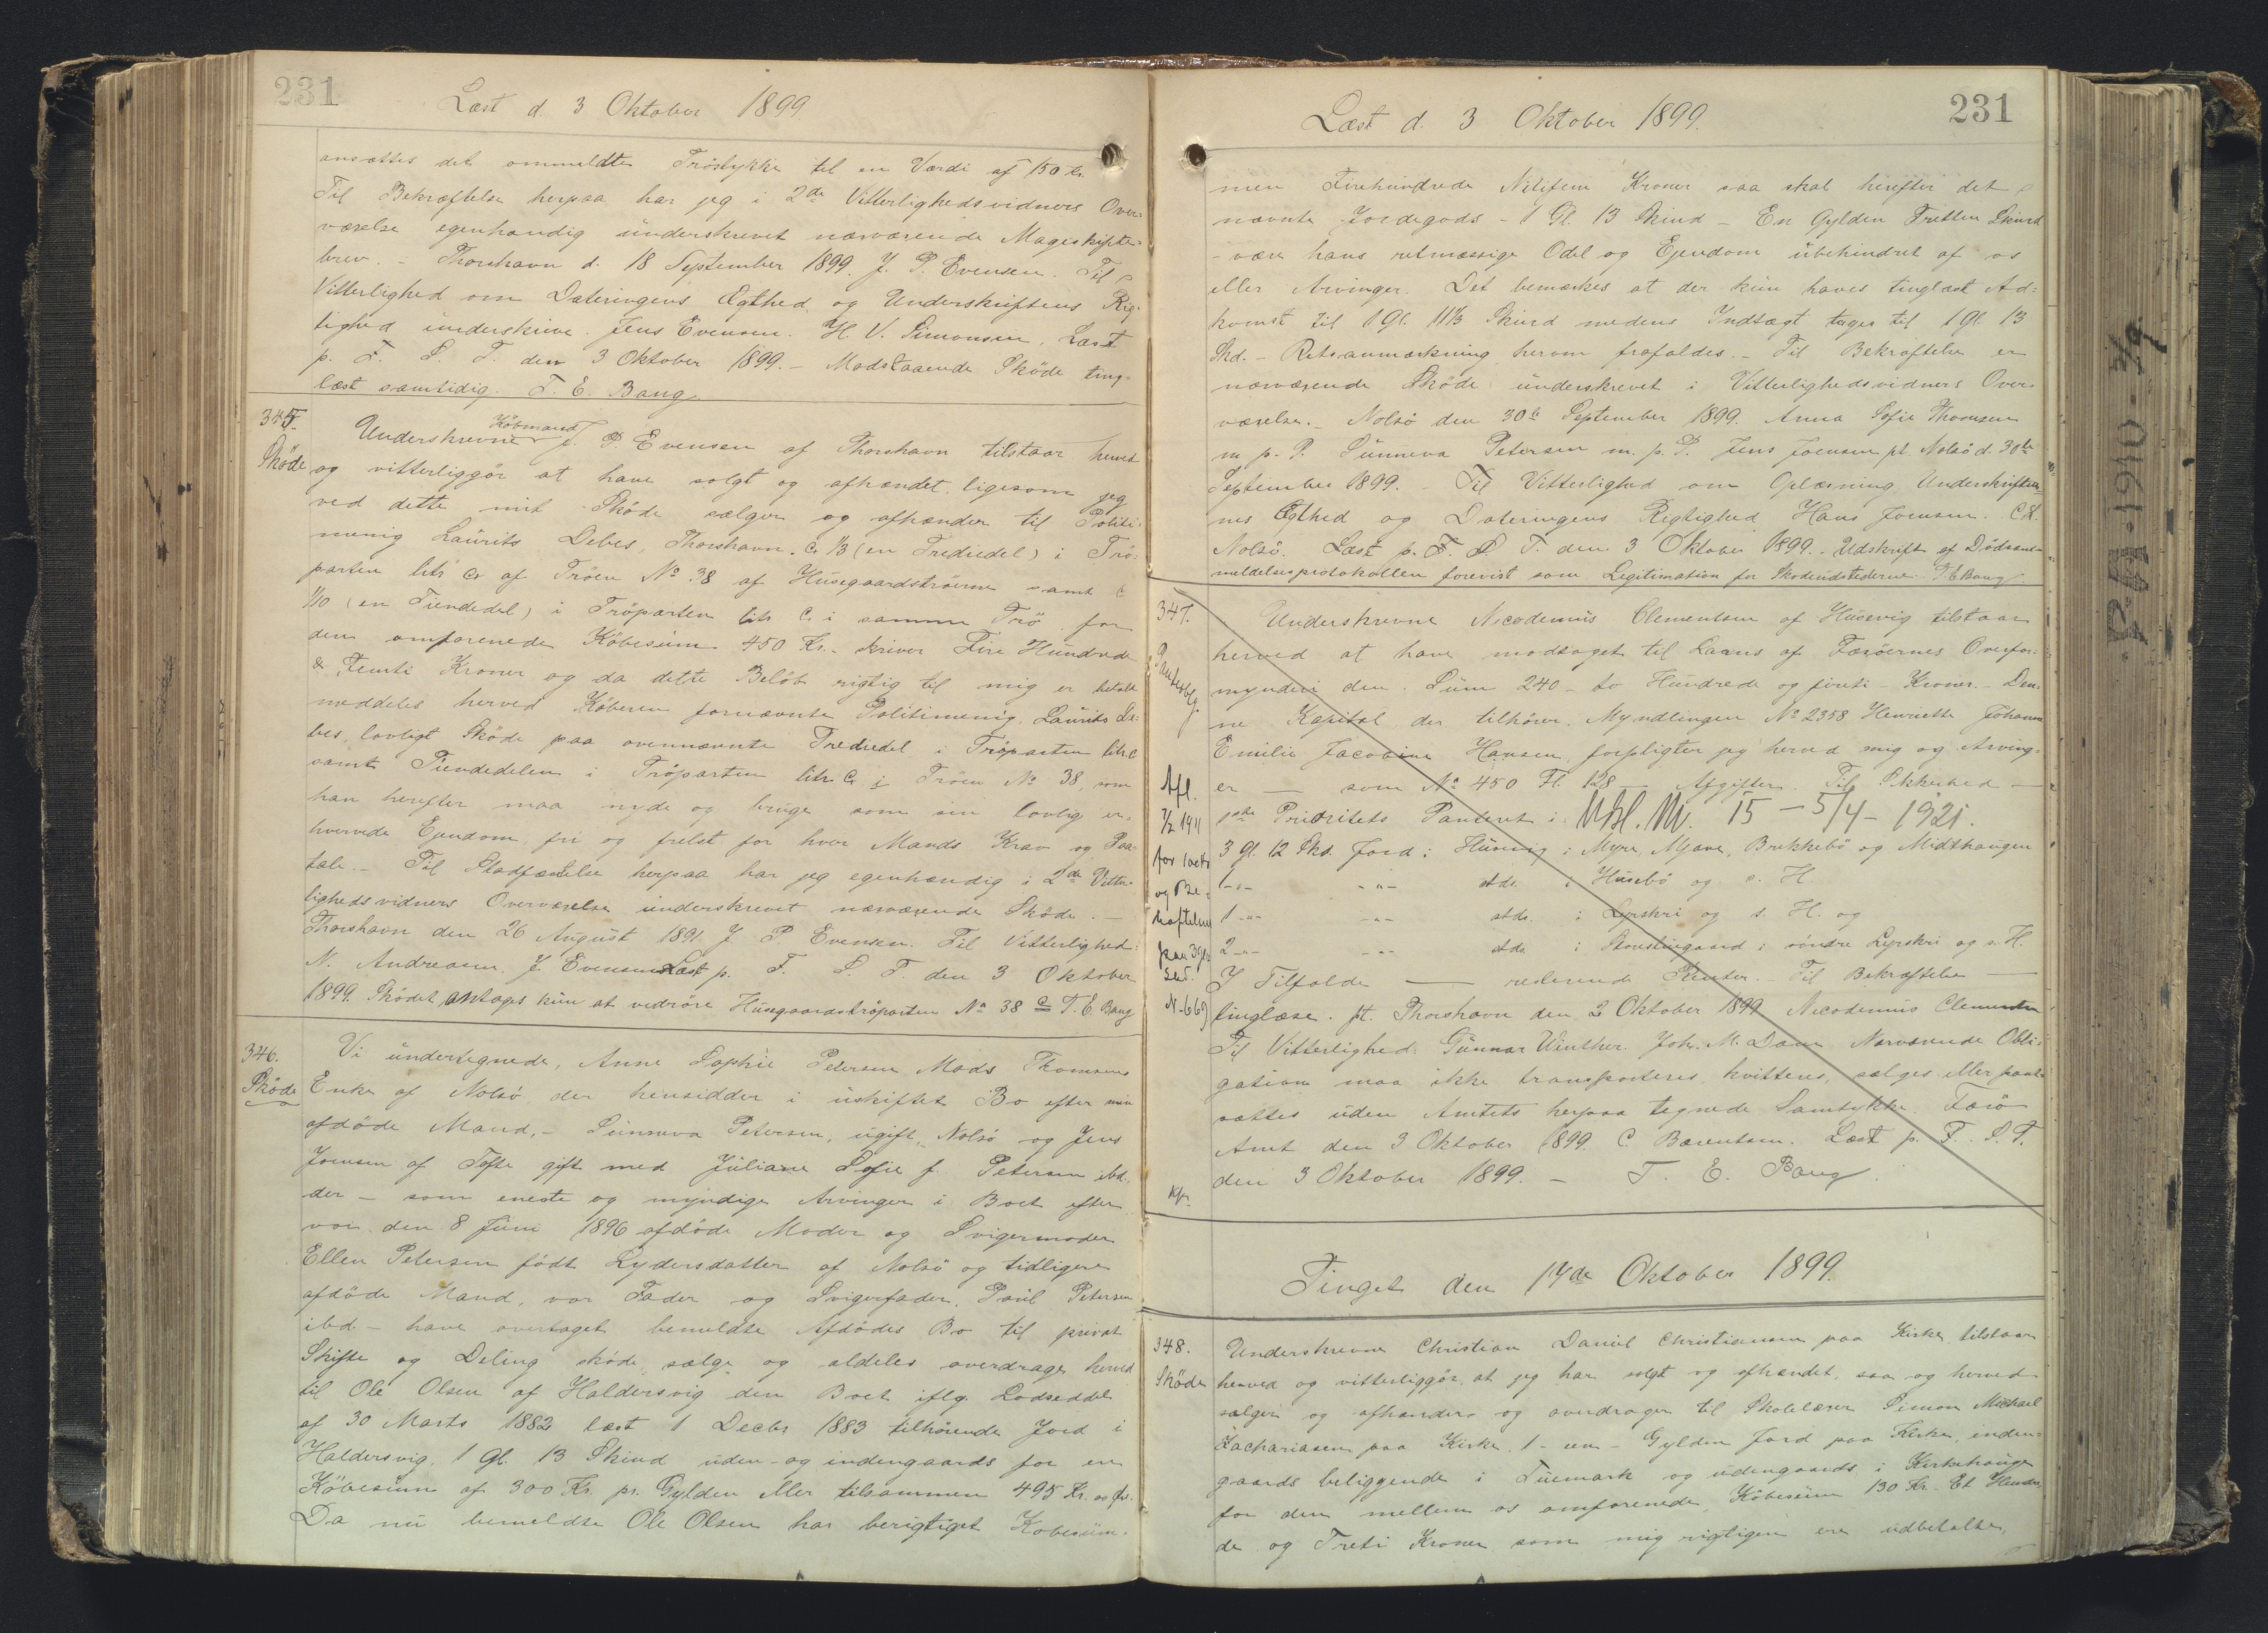 231
Læst d. 3 Oktober 1899.
ansættes det ommeldte Tröstykke til en Værdi af 150 Kr.
Til Bekræftelse herpaa har jeg i 2de Vitterlighedsvidners Over-
værelse egenhændig underskrevet nærværende Mageskifte-
brev. - Thorshavn d. 18 September 1899. J. P. Evensen. Til
Vitterlighed om Dateringens Ægthed og Underskriftens Rig-
tighed underskrive. Jens Evensen. H. V. Simonsen. Læst
p. F. S. T. den 3 Oktober 1899. - Modstaaende Sköde ting-
læst samtidig. T. E. Bang
345.
Sköde
Underskrevne Köbmand J. P Evensen af Thorshavn tilstaar herved
og vitterliggör at have solgt og afhændet ligesom jeg
ved dette mit Sköde sælger og afhænder til Politi-
menig Laurits Debes, Thorshavn. 1/3 (en Trediedel) i Trö-
parten litr C af Tröen No 38 af Husegaardströerne samt
1/10 (en Tiendedel) i Tröparten litr C. i samme Trö for
den omforenede Köbesum 450 Kr. - skriver Fire Hundrede
& Femti Kroner og da dette Belöb rigtig til mig er betalt
meddeles herved Köberen fornævnte Politimenig Laurits De-
bes, lovligt Sköde paa ovennævnte Trediedel i Tröparten litr C
samt Tiendedelen i Tröparten litr. C i Tröen No 38, som
han herefter maa nyde og bruge som sin lovlig er-
hvervede Ejendom fri og frelst for hver Mands Krav og Paa-
tale. - Til Stadfæstelse herpaa har jeg egenhændig i 2de Vitter-
lighedsvidners Overværelse underskrevet nærværende Sköde. -
Thorshavn den 26 August 1891. J. P. Evensen. Til Vitterlighed:
N. Andreasen. J. Evensen Læst p. F. S. T. den 3 Oktober
1899. Sködet antages kun at vedröre Husegaardströparten No 38 C T. E. Bang
346.
Sköde
Vi undertegnede, Anne Sophie Petersen Mads Thomsens
Enke af Nolsö, der hensidder i uskiftet Bo efter min
afdöde Mand, - Sunneva Petersen, ugift, Nolsö og Jens
Joensen af Tofte gift med Juliane Sofie f. Petersen ibd.
der - som eneste og myndige Arvinger i Boet efter
vor den 8 Juni 1896 afdöde Moder og Svigermoder
Ellen Petersen födt Lydersdatter af Nolsö og tidligere
afdöde Mand, vor Fader og Svigerfader, Poul Petersen
ibd - have overtaget bemeldte Afdödes Bo til privat
Skifte og Deling sköde, sælge og aldeles overdrage herved
til Ole Olsen af Haldersvig den Boet iflg. Lodseddel
af 30 Marts 1882 læst 1 Decbr 1883 tilhörende Jord i
Haldersvig, 1 Gl. 13 Skind uden- og indengaards for en
Köbesum af 300 Kr. pr. Gylden eller tilsammen 495 Kr. 00 Ør.
Da nu bemeldte Ole Olsen har berigtiget Köbesum-
231
Læst d. 3 Oktober 1899.
men Firehundrede Nitifem Kroner saa skal herefter det
nævnte Jordegods - 1 Gl. 13 Skind - En Gylden Tretten Skind
- være hans retmæssige Odel og Ejendom ubehindret af os
eller Arvinger. Det bemærkes at der kun haves tinglæst Ad-
komst til 1 Gl. 11 1/3 Skind medens Indtægt tages til 1 Gl 13
Skd. - Retsanmærkning herom frafaldes. - Til Bekræftelse er
nærværende Sköde underskrevet i Vitterlighedsvidners Over-
værelse. - Nolsö den 30te September 1899. Anna Sofie Thomsen
m. p. P. Sunneva Petersen m. p. P. Jens Joensen pt. Nolsö d. 30te
September 1899. - Til Vitterlighed om Oplæsning, Underskrifter-
nes Ægthed og Dateringens Rigtighed Hans Joensen.
Nolsö. Læst p. F. S. T. den 3 Oktober 1899. - Udskrift af Dödsan-
meldelsesprotokollen forevist som Legitimation for Skødeudstederne T. E. Bang
347.
Panteoblg.
Underskrevne Nicodemus Clementsen af Husevig tilstaar
herved at have modtaget til Laans af Færöernes Overfor-
mynderi den Sum 240 - to Hundrede og firti Kroner. - Den-
ne Kapital der tilhörer Myndlingen No 2358 Henriette Johanne
Emilie Jacobine Hansen, forpligter jeg herved mig og Arving-
er — som No 450 Fl. 128 — Afgifter. Til Sikkerhed —
1ste Prioritets Panteret i:
Ubl. M. 15 - 5/4 - 1921.
3 Gl. 12 Skd. Jord i Husevig i Myre, Mjave, Brekkebö og Midthaugen
1 -"- -"- stds. i Husebö og s. H.
1 -"- -"- stds. i Lyrskri og s. H. og
2 -"- -"- stds i i söndre Lyrskri og s. H.
I Tilfælde — resterende Renter. - Til Bekræftelse —
tinglæse. pt. Thorshavn den 2 Oktober 1899 Nicodemus Clementsen
Til Vitterlighed: Gunnar Winther. Joh. M. Dam Nærværende Obli-
gation maa ikke transporteres, kvitteres, sælges eller pant-
sættes uden Amtets herpaa tegnede Samtykke. Færö
Amt den 3 Oktober 1899. C. Bærentsen. Læst p. F. S. T.
den 3 Oktober 1899. - T. E. Bang.
Afl.
7/2 1911
og Be-
hæftelser
N-669
Tinget den 17de Oktober 1899.
348.
Sköde
Underskrevne Christian Daniel Christiansen paa Kirke tilstaar
herved og vitterliggör, at jeg har solgt og afhændet, saa og herved
sælger og afhænder og overdrager til Skolelærer Simon Michael
Zachariasen paa Kirke 1 - een - Gylden Jord paa Kirke, inden-
gaards beliggende i Tuemark og udengaards i Kirkehauge
for den mellem os omforenede Köbesum 130 Kr. Et Hundre-
de og Treti Kroner som mig rigtigen ere udbetalte,